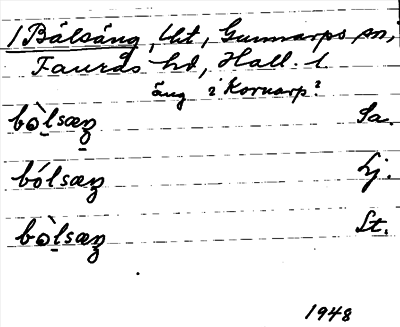 1 Bålsäng, Ut, Gunnarps sn,
Faurås hd, Hall. l.
äng i Kornarp?
bòlsæŋ Sa.
bólsæŋ Lj.
bòlsæŋ St.
1948